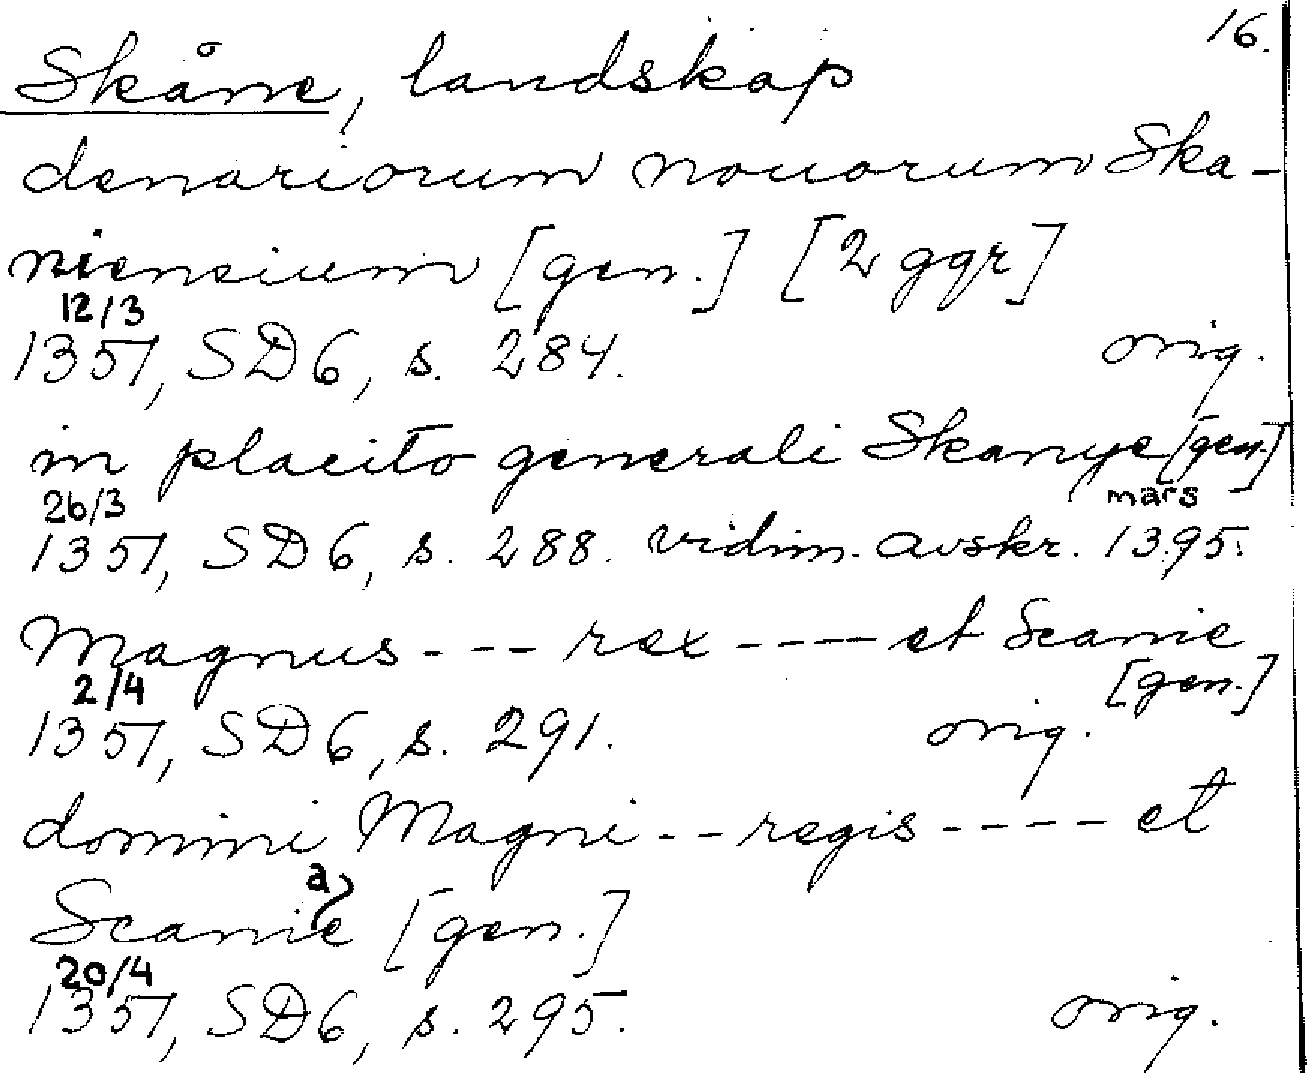 16.
Skåne, landskap
denariorum nouorum Ska-
niensium [gen.] [2 ggr]
12/3
1351, SD6, s. 284. orig.
in placito generali Skanye [gen.]
26/3 mars
1351, SD6, s. 288. vidim. avskr. 1395.
Magnus --- rex ---- et Scanie
2/4 [gen.]
1351, SD6, s. 291. orig.
domini Magni -- regis ---- et
a
Scanie [gen.]
20/4
1351, SD6, s. 295. orig.